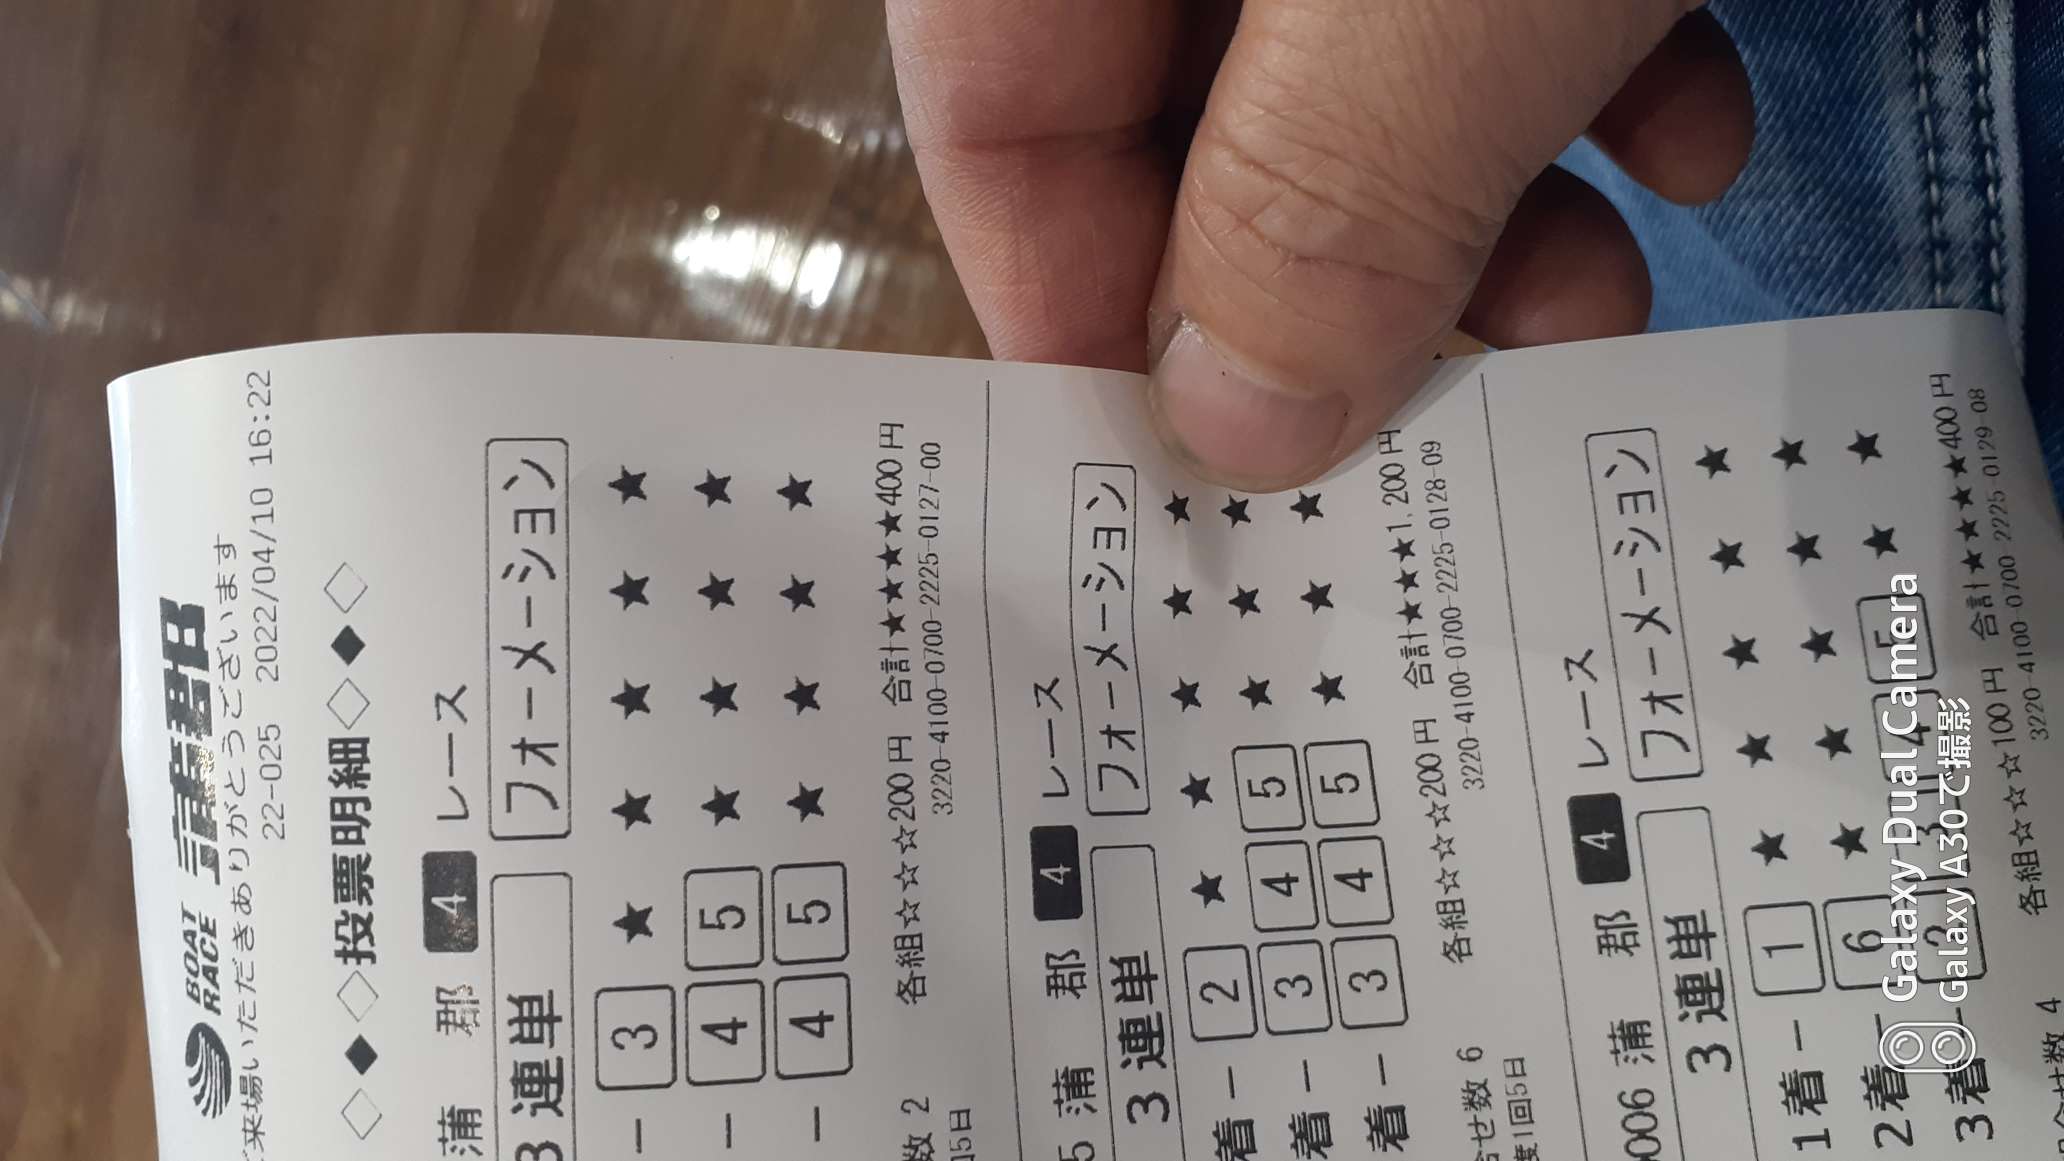 BOAT RACE 蒲郡
ご来場いただきありがとうございます
22-025 2022/04/10 16:22
◇◆◇投票明細◇◆◇
蒲 郡 4 レース
3連単 フォーメーション
- 3 ★ ★ ★ ★ ★
- 4 5 ★ ★ ★ ★
- 4 5 ★ ★ ★ ★
数 2 各組☆☆☆200円 合計★★★★★400円
3220-4100-0700-2225-0127-00
回5日
5 蒲 郡 4 レース
3連単 フォーメーション
着 - 2 ★ ★ ★ ★ ★
着 - 3 4 5 ★ ★ ★
着 - 3 4 5 ★ ★ ★
合せ数 6 各組☆☆☆200円 合計★★★★1,200円
度1回5日 3220-4100-0700-2225-0128-09
0006 蒲 郡 4 レース
3連単 フォーメーション
1着 - 1 ★ ★ ★ ★ ★
2着 - 6 ★ ★ ★ ★ ★
3着 - 2 3 4 5 ★ ★
数 4 各組☆☆☆100円 合計★★★★★400円
3220-4100-0700-2225-0129-08
Galaxy Dual Camera
Galaxy A30で撮影